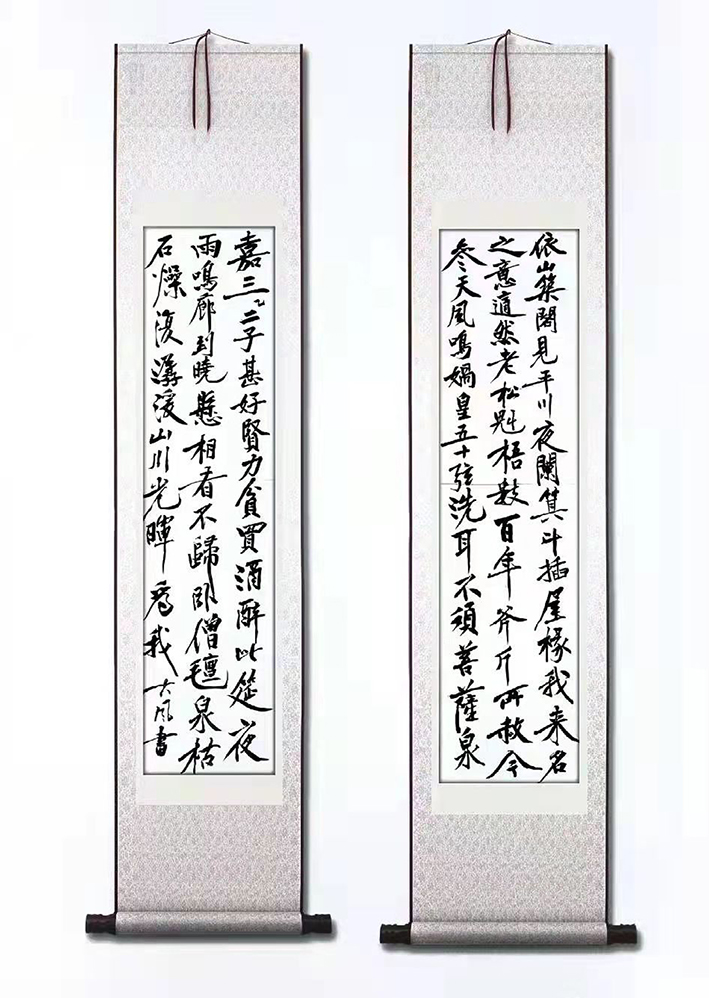 依山築閣見平川夜闌箕斗插屋椽我来名
之意適然老松魁梧數百年斧斤所赦今
參天風鳴媧皇五十弦洗耳不須菩薩泉
嘉三二子甚好賢力貧買酒醉此筵夜
雨鳴廊到曉懸相看不歸卧僧氈泉枯
石燥復潺湲山川光暉為我 大风書